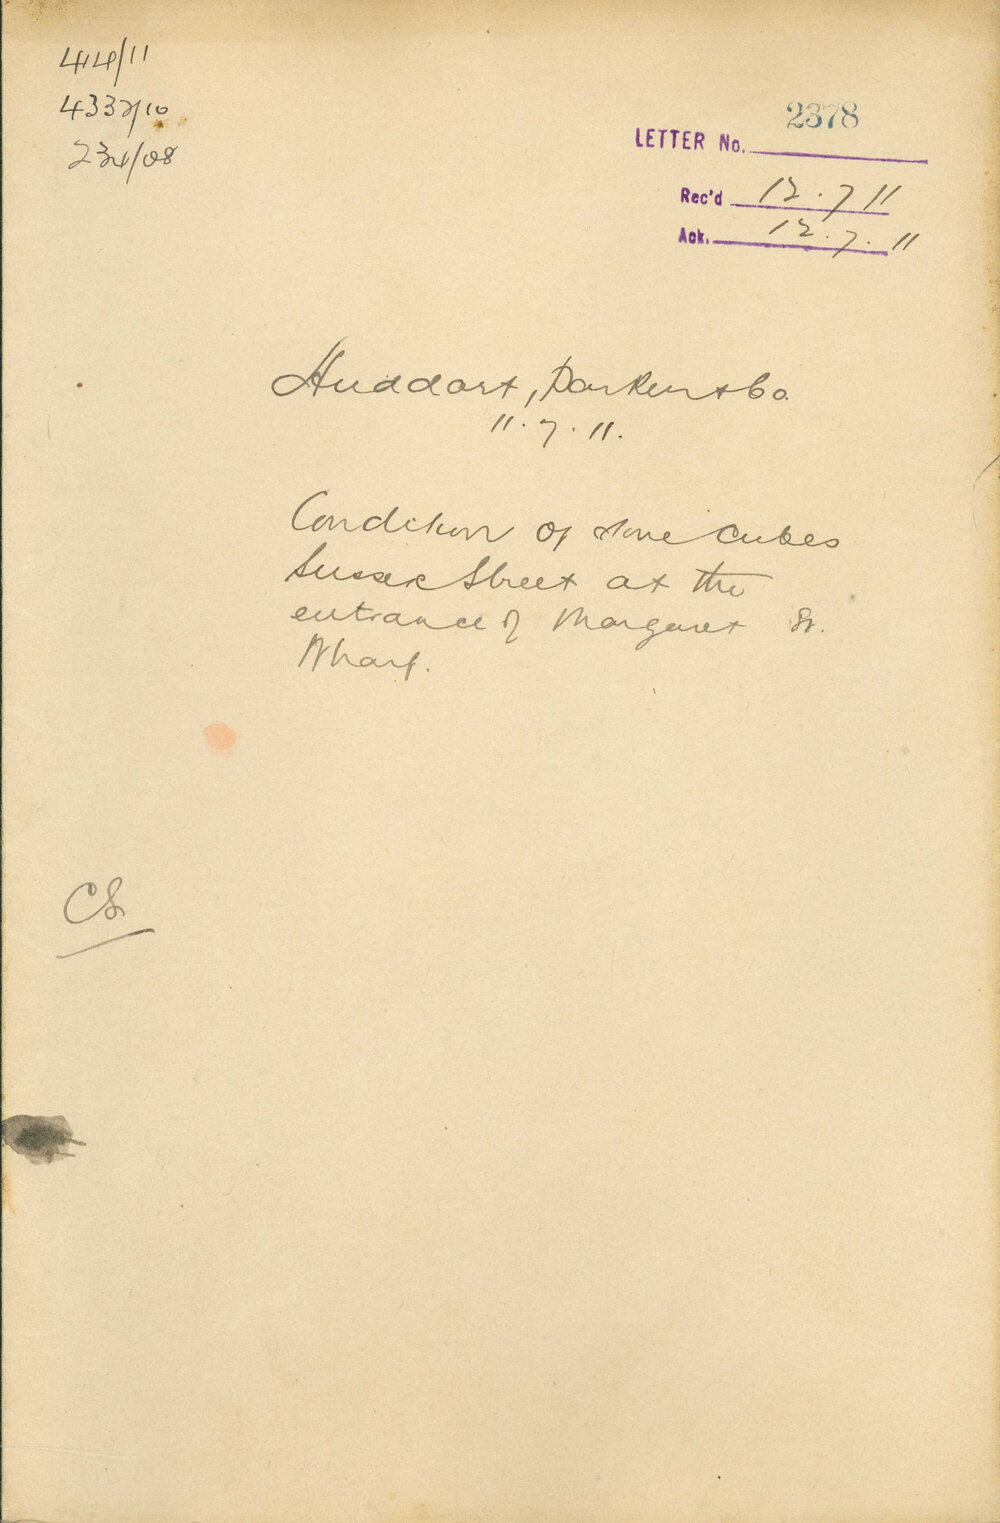 414/11
4332/10
234/08
2378
LETTER No.
Rec'd 12.7 11
Ack. 12.7.11
Huddart, Parker & Co
11.7.11.
Condition of stone cubes
Sussex Street at the
entrance of Margaret St.
Wharf.
CS